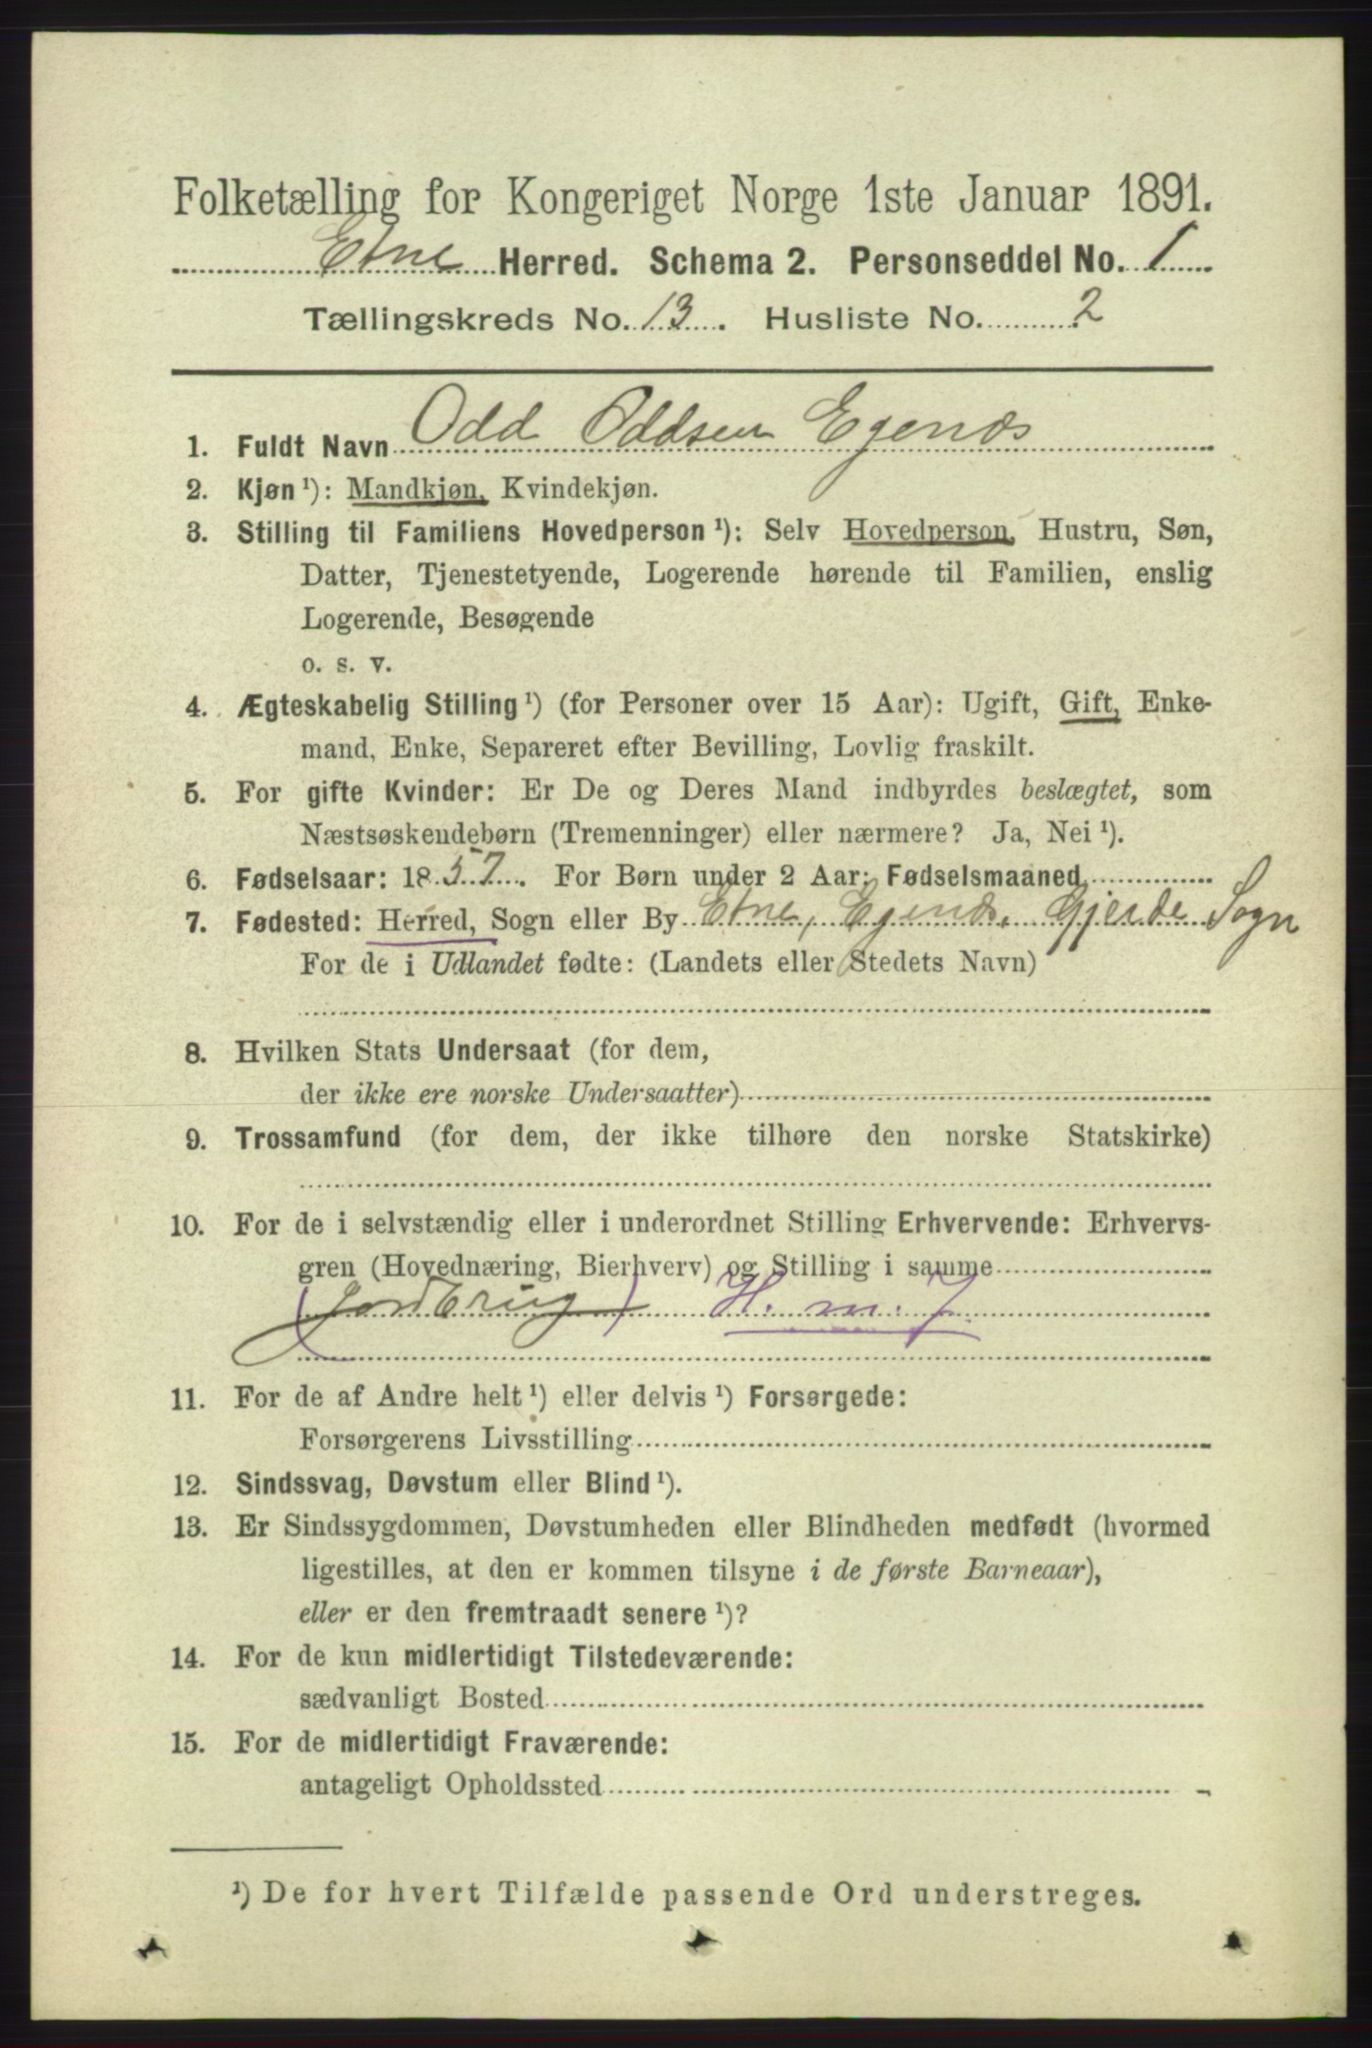 Folketælling for Kongeriget Norge 1ste Januar 1891.
Etne Herred. Schema 2. Personseddel No. 1
Tællingskreds No. 13. Husliste No. 2
1. Fuldt Navn Odd Oddsen Egenæs
2. Kjøn ¹): Mandkjøn, Kvindekjøn.
3. Stilling til Familiens Hovedperson ¹): Selv Hovedperson, Hustru, Søn,
Datter, Tjenestetyende, Logerende hørende til Familien, enslig
Logerende, Besøgende
o. s. v.
4. Ægteskabelig Stilling ¹) (for Personer over 15 Aar): Ugift, Gift, Enke-
mand, Enke, Separeret efter Bevilling, Lovlig fraskilt.
5. For gifte Kvinder: Er De og Deres Mand indbyrdes beslægtet, som
Næstsøskendebørn (Tremenninger) eller nærmere? Ja, Nei ¹).
6. Fødselsaar: 1857. For Børn under 2 Aar: Fødselsmaaned
7. Fødested: Herred, Sogn eller By Etne, Egenæs, Gjerde Sogn
For de i Udlandet fødte: (Landets eller Stedets Navn)
8. Hvilken Stats Undersaat (for dem,
der ikke ere norske Undersaatter)
9. Trossamfund (for dem, der ikke tilhøre den norske Statskirke)
10. For de i selvstændig eller i underordnet Stilling Erhvervende: Erhvervs-
gren (Hovednæring, Bierhverv) og Stilling i samme
(Jordbrug) H. m. J.
11. For de af Andre helt ¹) eller delvis ¹) Forsørgede:
Forsørgerens Livsstilling
12. Sindssvag, Døvstum eller Blind ¹).
13. Er Sindssygdommen, Døvstumheden eller Blindheden medfødt (hvormed
ligestilles, at den er kommen tilsyne i de første Barneaar),
eller er den fremtraadt senere ¹)?
14. For de kun midlertidigt Tilstedeværende:
sædvanligt Bosted
15. For de midlertidigt Fraværende:
antageligt Opholdssted
¹) De for hvert Tilfælde passende Ord understreges.